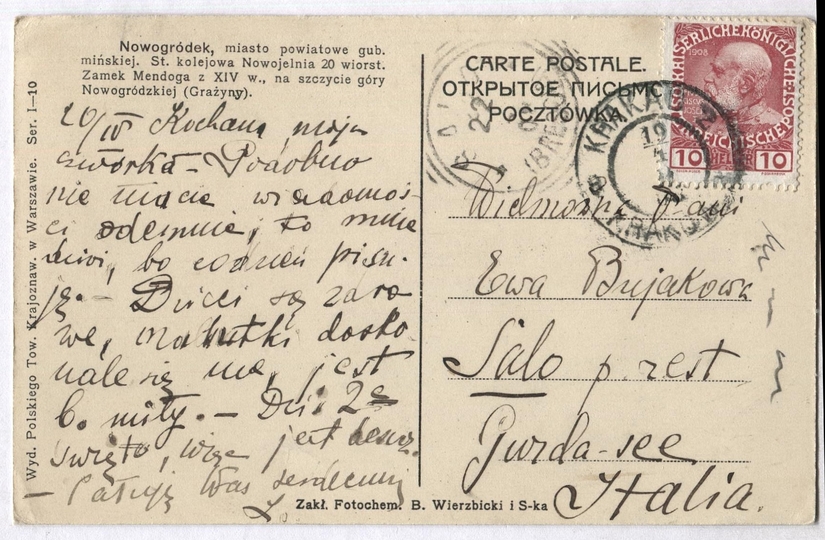 Nowogródek, miasto powiatowe gub.
mińskiej. St. kolejowa Nowojelnia 20 wiorst.
Zamek Mendoga z XIV w., na szczycie góry
Nowogródzkiej (Grażyny).
Wyd. Polskiego Tow. Krajoznaw. w Warszawie. Ser. I—10
20/IV Kochana moja
czwórka — Podobno
nie macie wiadomoś-
ci odemnie, to mnie
dziwi, bo codzień pisu-
ję. — Dzieci są zdro
we, malutki dosko-
nale się ma, jest
b. miły. — Dziś 2e
święto, więc jest
— Całuję Was serdecznie
CARTE POSTALE.
ОТКРЫТОЕ ПИСЬМО
POCZTÓWKA
KAISERLICHE KÖNIGLICHE
1908
10 HELLER 10
22
KRAKAU 2
KRAKÓW
Wielmożna Pani
Ewa Bujakowa
Salo p. rest
Gurda-see
Italia.
Zakł. Fotochem. B. Wierzbicki i S-ka